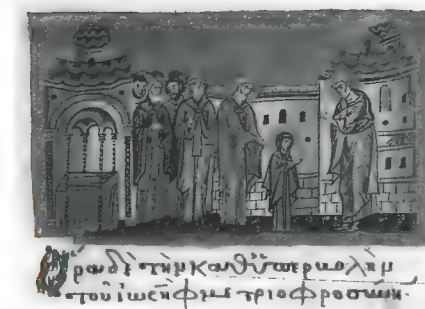 Ὅρα δὲ τὴν καθ' ὑπερβολὴν
τοῦ ἰωσὴφ μετριοφροσύνην·